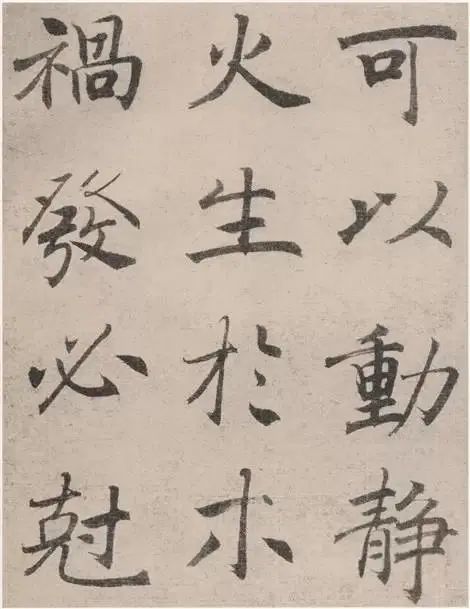 可以動静
火生於木
禍發必尅